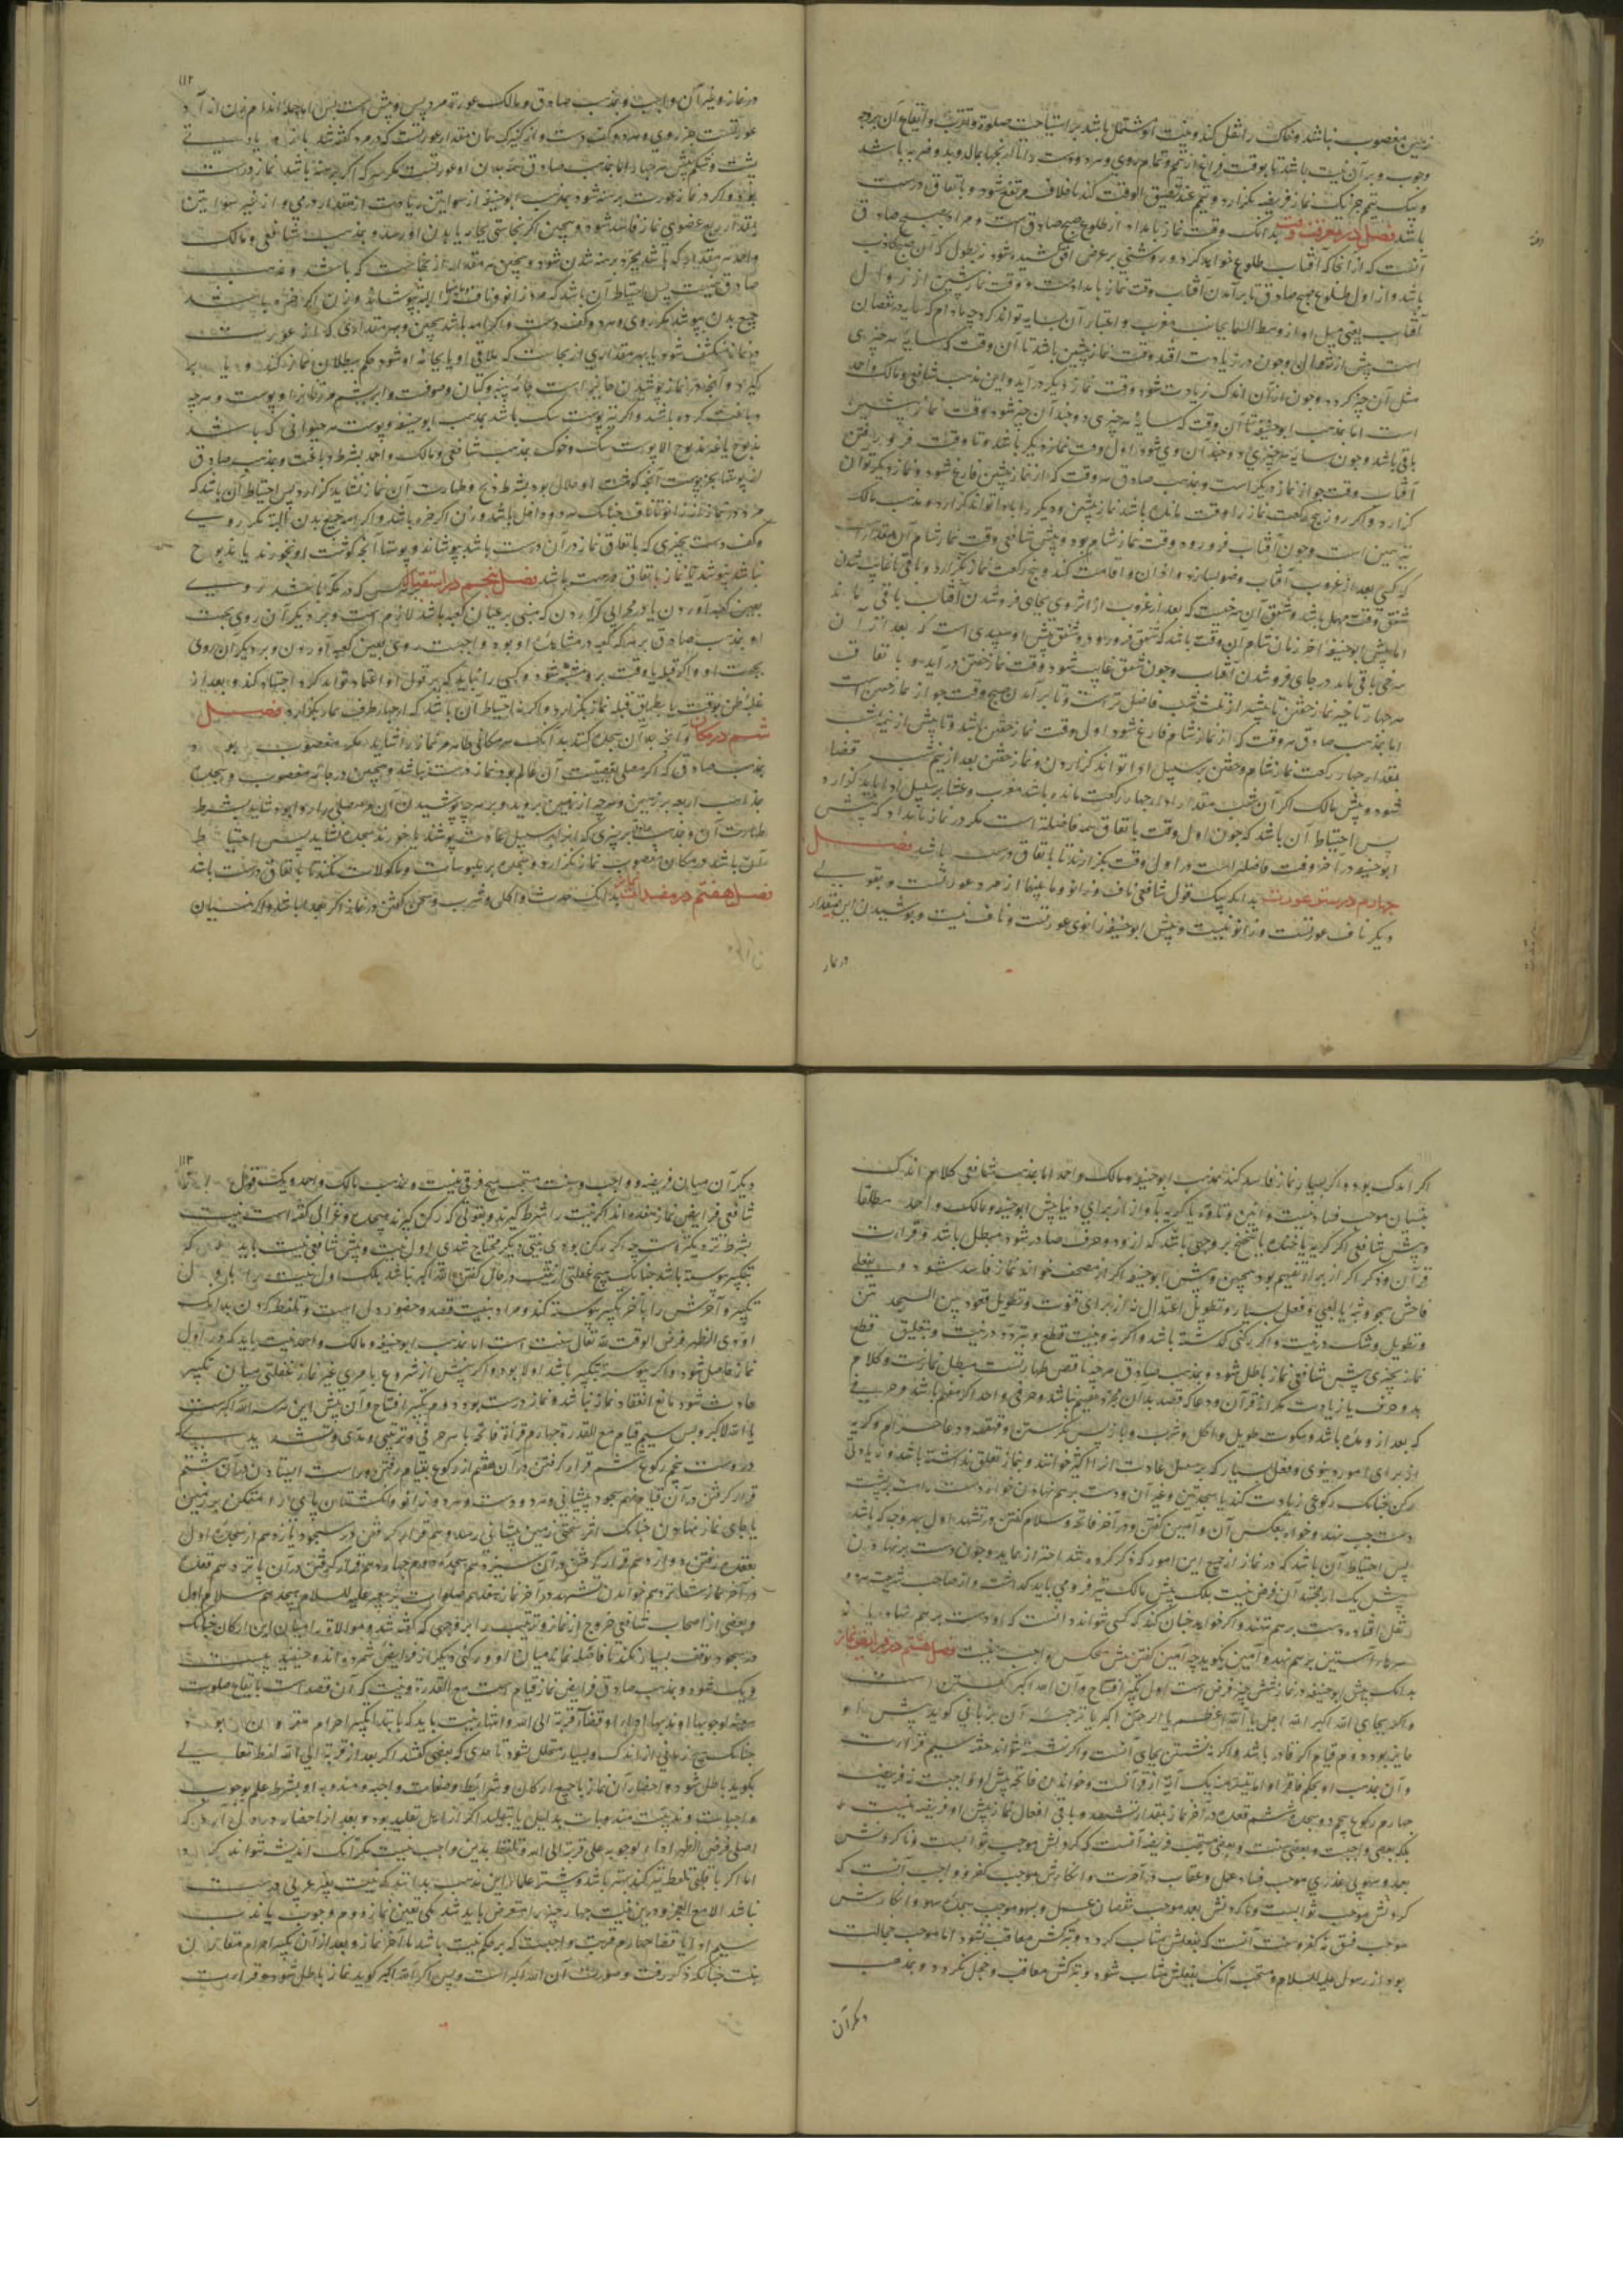 زمین مغصوب نباشد و خاک را نقل کند و نیت او مشتمل باشد بر استباحت صلوة و تقرب و ایقاع آن بر وجه
وجوب و بر آن نیت باشد تا بوقت فراغ از تیمم و تمام روی و هر دو دست
و بیک تیمم جز یک نماز فریضه نگزارد و تیمم عند تضیق الوقت کند تا خلاف مرتفع شود و باتفاق درست
باشد فصل در معرفت وقت بدانک وقت نماز بامداد از طلوع صبح صادق است و مراد بصبح صادق
آنست که از آنجا که آفتاب طلوع خواهد کرد روشنی بر عرض افق کشیده شود نه بطول که آن صبح کاذب
باشد و از اول طلوع صبح صادق تا برآمدن آفتاب وقت نماز بامداد است و وقت نماز پیشین از زوال
آفتاب یعنی میل او از وسط السما بجانب مغرب و اعتبار آن بسایه تواند کرد چه مادام که سایه در نقصان
است پیش از زوال و چون در زیادت افتد وقت نماز پیشین باشد تا آن وقت که سایه هر چیزی
مثل آن چیز گردد و چون از آن اندک زیادت شود وقت نماز دیگر درآید و این مذهب شافعی و مالک و احمد
است اما بمذهب ابوحنیفه تا آن وقت که سایه هر چیزی دو چند آن چیز شود وقت نماز پیشین
باقی باشد و چون سایه هر چیزی دو چند آن شود اول وقت نماز دیگر باشد و تا وقت فرو رفتن
آفتاب وقت جواز نماز دیگر است و بمذهب صادق هر وقت که از نماز پیشین فارغ شود نماز دیگر توان
گزارد و اگر روز پنج رکعت نماز را وقت مانده باشد نماز پیشین و دیگر را بادا تواند گزارد و مذهب مالک
نیز همین است و چون آفتاب فرو رود وقت نماز شام بود و پیش شافعی وقت نماز شام آن مقدار است
که کسی بعد از غروب آفتاب وضو بسازد و اذان و اقامت کند و پنج رکعت نماز بگزارد و باقی تا غایب شدن
شفق وقت مهمل باشد و شفق آن سرخیست که بعد از غروب از اثر وی بجای فرو شدن آفتاب باقی ماند
اما پیش ابوحنیفه آخر زمان شام آن وقت باشد که شفق فرو رود و شفق پیش او سپیدی است که بعد از آن
سرخی باقی ماند در جای فرو شدن آفتاب و چون شفق غایب شود وقت نماز خفتن درآید و باتفاق
هر چهار تاخیر نماز خفتن تا پیش از ثلث شب فاضل تر است و تا برآمدن صبح وقت جواز نماز خفتن است
اما بمذهب صادق هر وقت که از نماز شام فارغ شود اول وقت نماز خفتن باشد و تا پیش از نیم شب
بمقدار چهار رکعت نماز شام و خفتن بر سبیل ادا تواند گزاردن و نماز خفتن بعد از نیم شب قضا
شود و پیش مالک اگر از شب مقدار ادای چهار رکعت مانده باشد مغرب و عشا بر سبیل ادا باید گزارد
پس احتیاط آن باشد که چون اول وقت باتفاق همه فاضلتر است مگر در نماز بامداد که پیش
ابوحنیفه در آخر وقت فاضلتر است در اول وقت بگزارند تا باتفاق درست باشد فصل
چهارم در ستر عورت بدانک بیک قول شافعی ناف و زانو و ما بینهما از مرد عورتست و بقولی
دیگر ناف عورتست و زانو نیست و پیش ابوحنیفه زانو عورتست و ناف نیست و پوشیدن این مقدار
در نماز
۱۱۲
در نماز و غیر آن واجبست و بمذهب صادق و مالک عورت مرد پس و پیش است پس اما جمله اندام زن آزاد
عورتست جز روی و هر دو کف دست و از کنیزک همان مقدار عورتست که در مرد گفته شد
پشت و شکم پیش هر چهار اما بمذهب صادق همه بدن او عورتست مگر سر که اگر برهنه باشد نماز درست
بود و اگر در نماز عورت برهنه شود بمذهب ابوحنیفه
بمقدار ربع عضوی نماز فاسد شود و همچنین اگر نجاستی بجامه یا بدن او رسد و بمذهب شافعی و مالک
و احمد هر مقدار که باشد بمجرد برهنه شدن شود و همچنین هر مقدار از نجاست که باشد و مذهب
صادق پس احتیاط آن باشد که مرد زانو و ناف البته بپوشاند و زن اگر حره باشد
جمیع بدن بپوشد مگر روی و هر دو کف دست و اگر امه باشد همچنین و بهر مقداری که از عورت
در نماز منکشف شود یا بهر مقداری از نجاست که ملاقی او یا بجامه او شود حکم ببطلان نماز کند
و آنچه در نماز پوشیدن جایز است جامه پنبه و کتان و صوفست و ابریشم و پوست هر چه
دباغت کرده باشد و اگر نیز پوست سگ باشد بمذهب ابوحنیفه و پوست هر حیوانی که باشد
مذبوح یا غیر مذبوح الا پوست سگ و خوک بمذهب شافعی و مالک و احمد بشرط دباغت و بمذهب صادق
از پوستها بجز پوست آنچه گوشت او حلال بود بشرط ذبح و طهارت آن نماز نشاید گزارد پس احتیاط آن باشد که
وکف دست بچیزی که باتفاق نماز در آن درست باشد بپوشاند و پوستها آنچه گوشت او نخورند یا مذبوح
نباشد نپوشد تا نماز باتفاق درست باشد فصل پنجم در استقبال هر کس که در مکه باشد روی
بعین کعبه آوردن یا در محرابی گزاردن که مبنی بر عیان کعبه باشد لازم است و بر دیگران روی بجهت
او بمذهب صادق بر هر که کعبه در مشاهده او بود واجبست روی بعین کعبه آوردن و بر دیگران روی
بجهت او و اگر قبله یا وقت برو مشتبه شود و کسی را نیابد که بر قول او اعتماد تواند کرد اجتهاد کند و بعد از
غلبه ظن بوقت یا بطرف قبله نماز بگزارد و اگر نه احتیاط آن باشد که از چهار طرف نماز بگزارد فصل
ششم در مکان و آنچه بدان سجده کنند بدانک هر مکانی طاهر نماز را شاید مگر مغصوب بود
بمذهب صادق که اگر مصلی بغصبیت آن عالم بود نماز درست نباشد و همچنین در جامه مغصوب و سجده
بمذاهب اربعه بر زمین و هر چه از زمین بروید و بر هر چه پوشیدن آن مر مصلی را روا بود شاید بشرط
طهارت آن و بمذهب صادق بر چیزی که بر سبیل عادت پوشند یا خورند سجده نشاید پس احتیاط
آن باشد در مکان مغصوب نماز نگزارد و سجده بر ملبوسات و ماکولات نکند تا باتفاق درست باشد
فصل هفتم در مفسدات نماز بدانک حدث و اکل و شرب و سخن گفتن در نماز اگر بعمد باشد و اگر نسیان
اگر اندک بود و اگر بسیار نماز فاسد کند بمذهب ابوحنیفه و مالک و احمد اما بمذهب شافعی کلام اندک
بنسیان موجب فساد نیست و انین و تاوه یا گریه بآواز از برای دنیا پیش ابوحنیفه و مالک و احمد مطلقا
و پیش شافعی اگر گریه یا خنده یا تنحنح بر وجهی باشد که ازو دو حرف صادر شود مبطل باشد و قراءت
قرآن و ذکر اگر از برای تفهیم بود همچنین و پیش ابوحنیفه اگر از مصحف خواند نماز فاسد شود و بفعلی
فاحش چو وثبه یا لعبی و فعل بسیار و تطویل اعتدال نه از برای قنوت و تطویل قعود بین السجدتین
و تطویل و شک در نیت و اگر رکنی گذشته باشد و اگر نه و نیت قطع و تردد در نیت و بتعلیق قطع
نماز بچیزی پیش شافعی نماز باطل شود و بمذهب صادق هر چه ناقض طهارتست مبطل نمازست و کلام
بدو حرف یا زیادت مگر از قرآن و دعا که قصد بدان مجرد تفهیم نباشد و حرفی واحد اگر مفهم باشد و حرفی
که بعد ازو مده باشد و سکوت طویل و اکل و شرب و باز پس نگرستن و قهقهه و دعا حرام و گریه
از برای امور دنیوی و فعل بسیار که بر سبیل عادت آنرا کثیر خوانند و بنماز تعلق نداشته باشد و زیادتی
رکن چنانک رکوعی زیادت کند یا سجدتین و غیر آن و دست بر هم نهادن خواه دست راست بر پشت
دست چپ نهد و خواه بعکس آن و آمین گفتن در آخر فاتحه و سلام گفتن در تشهد اول بهر وجه که باشد
پس احتیاط آن باشد که در نماز از جمیع این امور که ذکر کرده شد احتراز نماید و چون دست بر هم نهادن
پیش یک از مجتهدان فرض نیست بلک پیش مالک نیز فرو می باید گذاشت و از صاحب شریعت هر دو
نقل افتاده دست بر هم ننهد و اگر خواهد چنان کند که کسی نتواند دانست که او دست بر هم نهاده یا نه
سرهاء آستین بر هم نهد و آمین نگوید چه آمین گفتن پیش هیچکس واجب نیست فصل هشتم در فرایض نماز
بدانک پیش ابوحنیفه در نماز شش چیز فرض است اول تکبیر افتتاح و آن الله اکبر گفتن است
و اگر بجای الله اکبر الله اجل یا الله اعظم یا الرحمن اکبر یا ترجمه آن بزبانی گوید پیش او
جایز بود دوم قیام اگر قادر باشد و اگر نه نشستن بجای آنست و اگر نشسته نتواند خفته سیم قراءت
و آن بمذهب او بحکم فاقرءوا ما تیسر منه یک آیة از قرآنست و خواندن فاتحه پیش او واجبست نه فریضه
چهارم رکوع پنجم دو سجده ششم قعده در آخر نماز بمقدار تشهد و باقی افعال نماز پیش او فریضه نیست
بلک بعضی واجبست و بعضی سنت و بعضی مستحب فریضه آنست که کردنش موجب ثوابست و ناکردنش
بعمد و سهو بی عذری موجب فساد عمل و عقاب در آخرت و انکارش موجب کفر و واجب آنست که
کردنش موجب ثوابست و ناکردنش بعمد موجب نقصان عمل و بسهو موجب سجده سهو و انکارش
موجب فسق نه کفر و سنت آنست که بفعلش مثاب گردد و بترکش معاقب نشود اما موجب خجالت
بود از رسول علیه السلام و مستحب آنک بفعلش مثاب شود و بترکش معاقب و خجل نگردد و بمذهب
دیگران
۱۱۳
دیگران میان فریضه و واجب و سنت و مستحب هیچ فرقی نیست و بمذهب مالک و احمد و یک قول
شافعی فرایض نماز هفده اند اگر نیت را شرط گیرند و بقولی که رکن گیرند هیجده و غزالی گفته است نیت
بشرط نزدیکترست چه اگر رکن بودی بنیتی دیگر محتاج شدی اول نیت و پیش شافعی نیت باید که
بتکبیر پیوسته باشد چنانک هیچ غفلتی از نیت در حال گفتن الله اکبر نباشد بلک اول نیت
تکبیر و آخرش را بآخر تکبیر پیوسته کند و مراد بنیت قصد و حضور دل است و تلفظ کردن بدانک
اؤدی الظهر فرض الوقت لله تعالی سنت است اما بمذهب ابوحنیفه و مالک و احمد نیت باید که در اول
نماز حاصل شود و اگر پیوسته بتکبیر باشد اولا بود و اگر پیش از شروع بامری غیر نماز غفلتی میان تکبیر
حادث شود مانع انعقاد نماز نباشد و نماز درست بود دوم تکبیر افتتاح و آن پیش این هر سه الله اکبرست
یا الله الاکبر و بس سیم قیام مع القدرة چهارم قراءة فاتحه با هر حرفی و ترتیبی و مدی و تشدیدی
دروست پنجم رکوع ششم قرار گرفتن در آن هفتم از رکوع بقیام رفتن و راست ایستادن هشتم
قرار گرفتن در آن قیام نهم سجود بپیشانی و هر دو دست و هر دو زانو و انگشتان پای
یا جای نماز نهادن چنانک اثر سختی زمین بپیشانی رسد دهم قرار گرفتن در سجود یازدهم از سجده اول
بقعده رفتن دوازدهم قرار گرفتن در آن سیزدهم سجده دوم چهاردهم قرار گرفتن در آن پانزدهم قعده
در آخر نماز شانزدهم خواندن تشهد در آخر نماز هفدهم صلوات بر پیغمبر علیه السلام هیجدهم سلام اول
و بعضی از اصحاب شافعی خروج از نماز و ترتیب را بر وجهی که گفته شد و موالاة میان این ارکان چنانک
در سجود توقف بسیار نکند تا فاصله نماند میان او و رکنی دیگر از فرایض شمرده اند
و یک شود و بمذهب صادق فرایض نماز قیام است مع القدرة و نیت که آن قصد است بایقاع صلوت
معینه لوجوبها او ندبها اداء او قضاء قربة الی الله و انتهاء نیت باید که بابتداء تکبیر احرام مقرون بود
چنانک هیچ زمانی از اندک و بسیار متخلل نشود تا حدی که بعضی گفتند اگر بعد از قربة الی الله لفظ تعالی
بگوید باطل شود و احضار آن نماز با جمیع ارکان و شرایط و صفات واجبه و مندوبه او بشرط علم بوجوب
واجبات و ندبیت مندوبات بدلیل یا بتقلید اگر از اهل تقلید بود و بعد از احضار در دل آرد که
اصلی فرض الظهر اداء لوجوبه علی قربة الی الله و تلفظ بدین واجب نیست مگر آنک اندیشه نتواند کرد
اما اگر بآهستگی تلفظ نیز کند بهتر باشد و بیشتر علماء این مذهب بدانند که نیت بغیر عربی درست
نباشد الا مع العجز و درین نیت چهار چیز را متعرض باید شد یکی تعین نماز دوم وجوب یا ندب
سیم ادا یا قضا چهارم قربت و واجبست که بر حکم نیت باشد تا آخر نماز و بعد از آن تکبیر احرام مقارن
نیت چنانک ذکر رفت و صورت آن الله اکبر است و بس اگر الله الاکبر گوید نماز باطل شود و قراءت